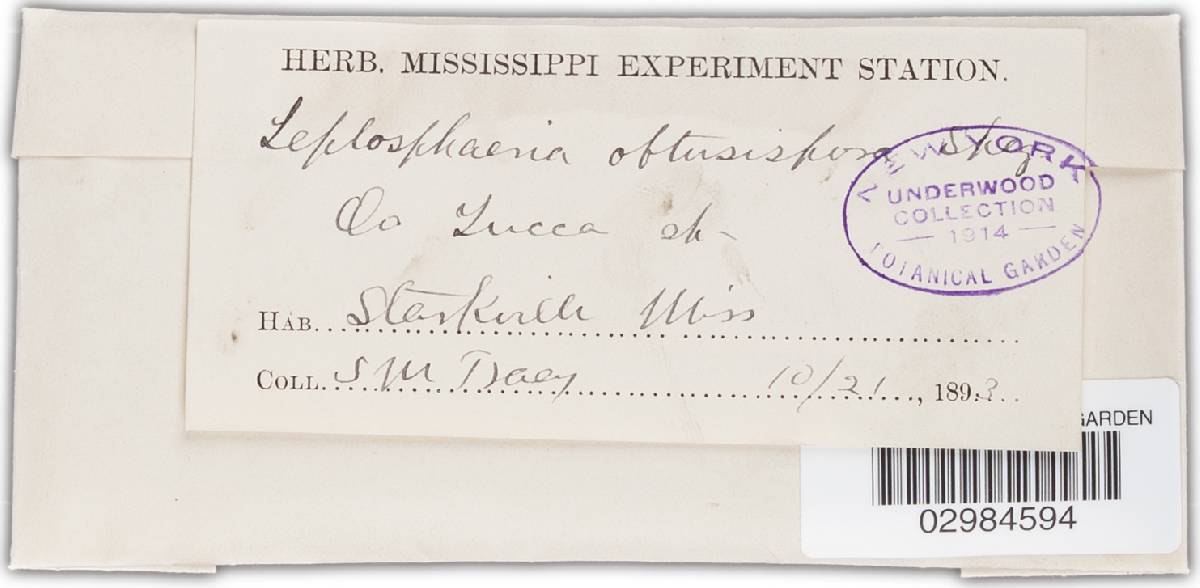 HERB. MISSISSIPPI EXPERIMENT STATION.
Leptosphaeria obtusispora Speg
On Yucca
HAB. Starkville Miss
COLL. S M Tracy 10/21, 1893
NEW YORK
UNDERWOOD
COLLECTION
— 1914 —
BOTANICAL GARDEN
GARDEN
02984594